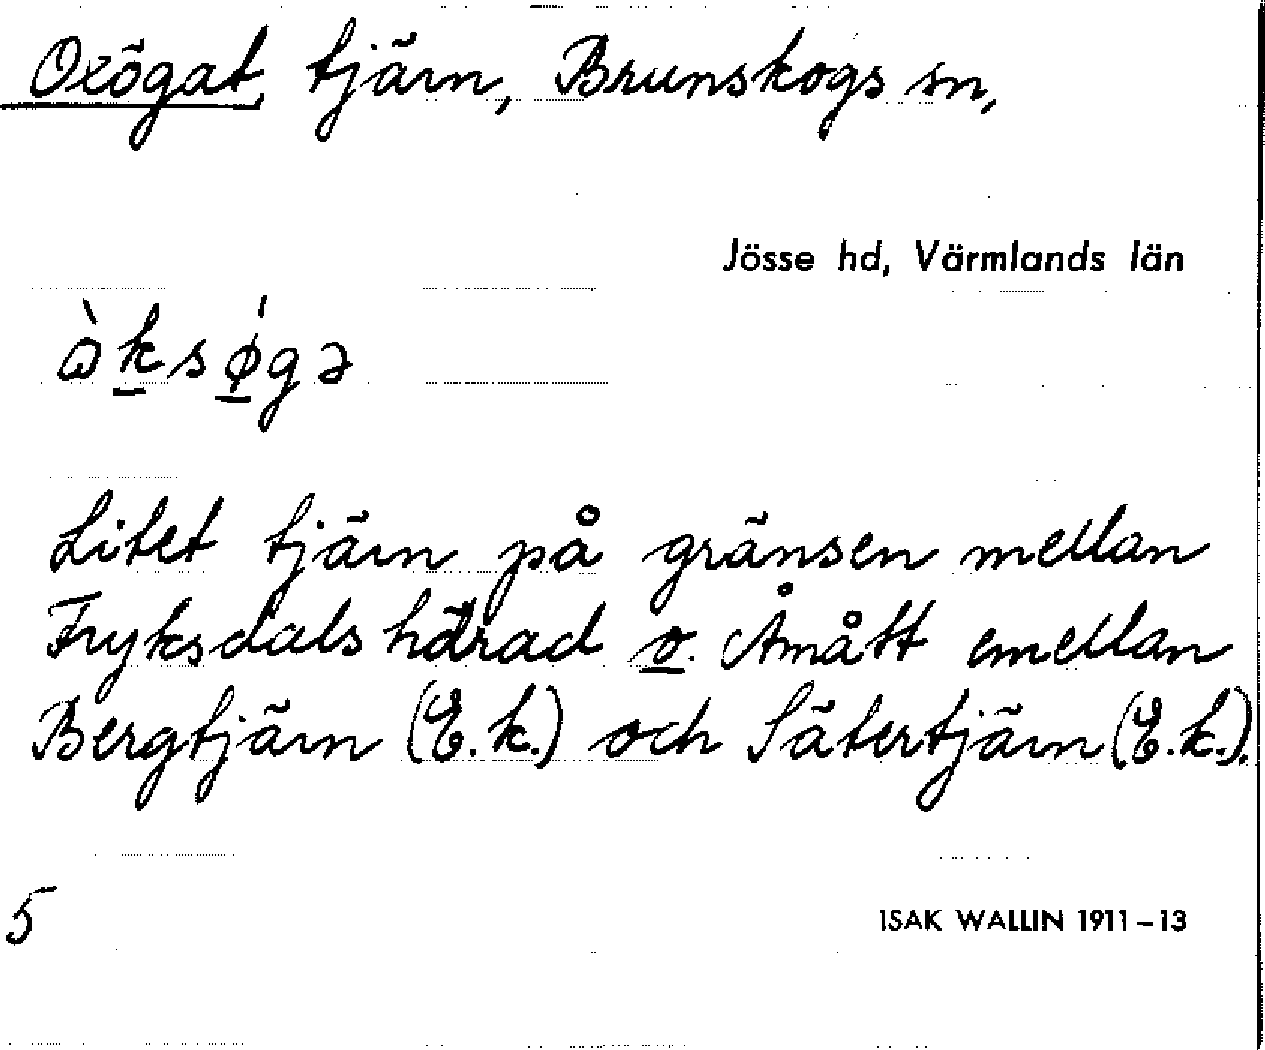 Oxögat, tjärn, Brunskogs sn,
Jösse hd, Värmlands län
Litet tjärn på gränsen mellan
Fryksdals härad o. Åmått emellan
Bergtjärn (E.k.) och Sätertjärn (E.k.).
5
ISAK WALLIN 1911–13